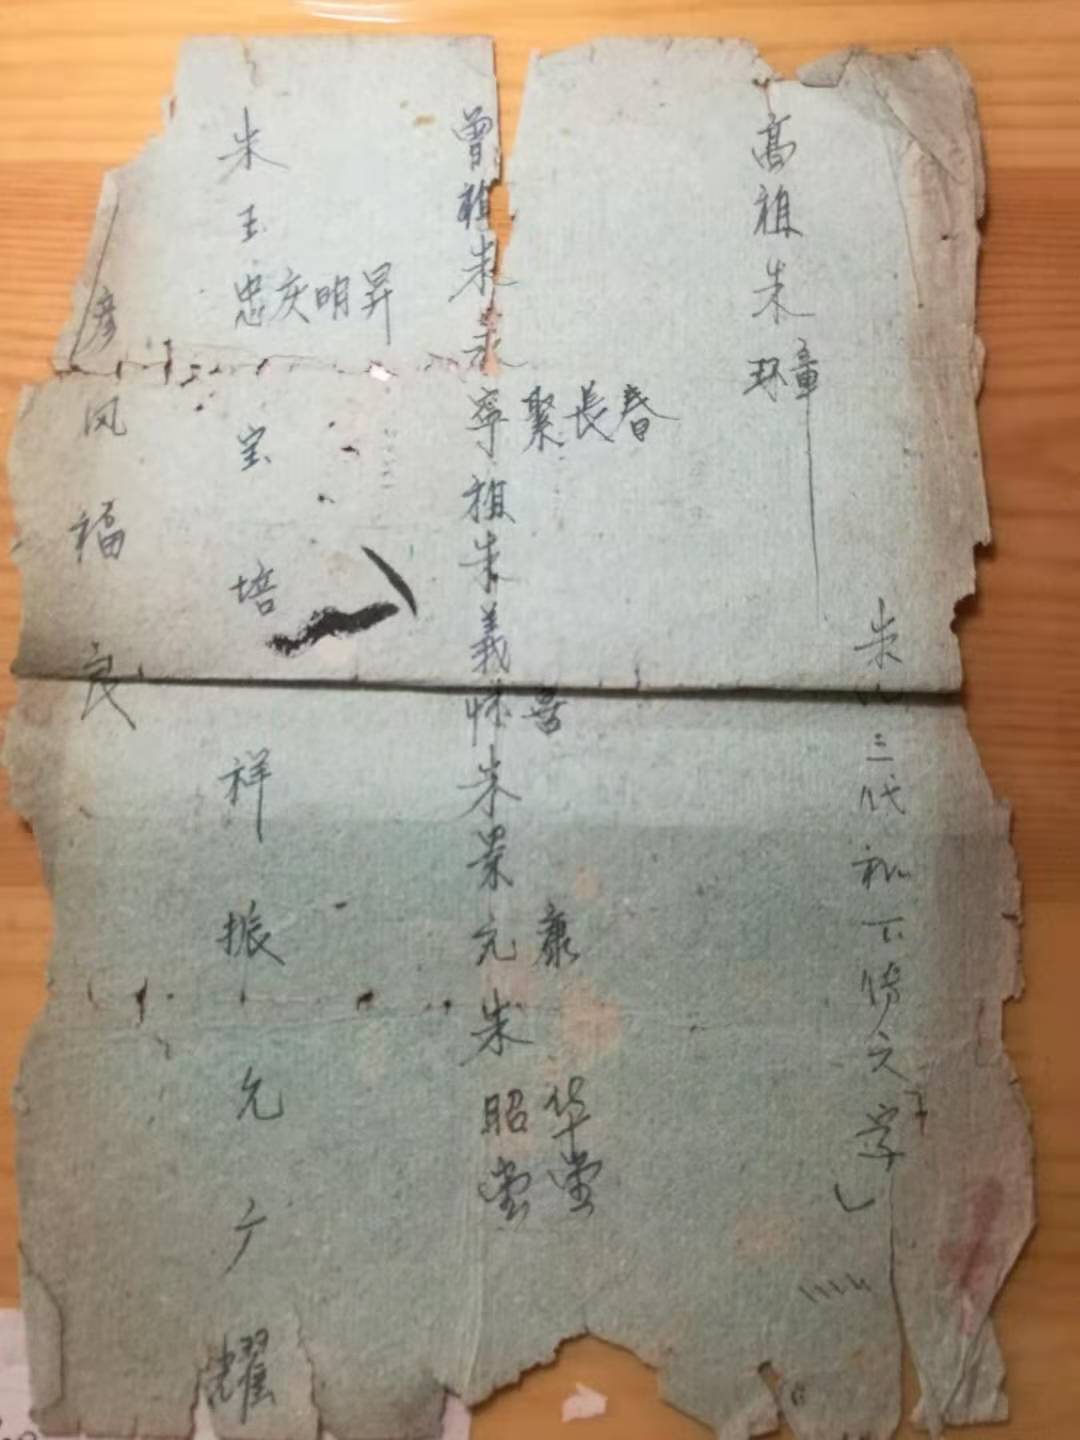 朱 三代 下 文字
高祖朱环章
曾祖朱永寧聚長春祖朱義怀喜朱景元康朱昭堂华堂
朱玉忠庆明昇宝培祥振允广耀
彦凤福良